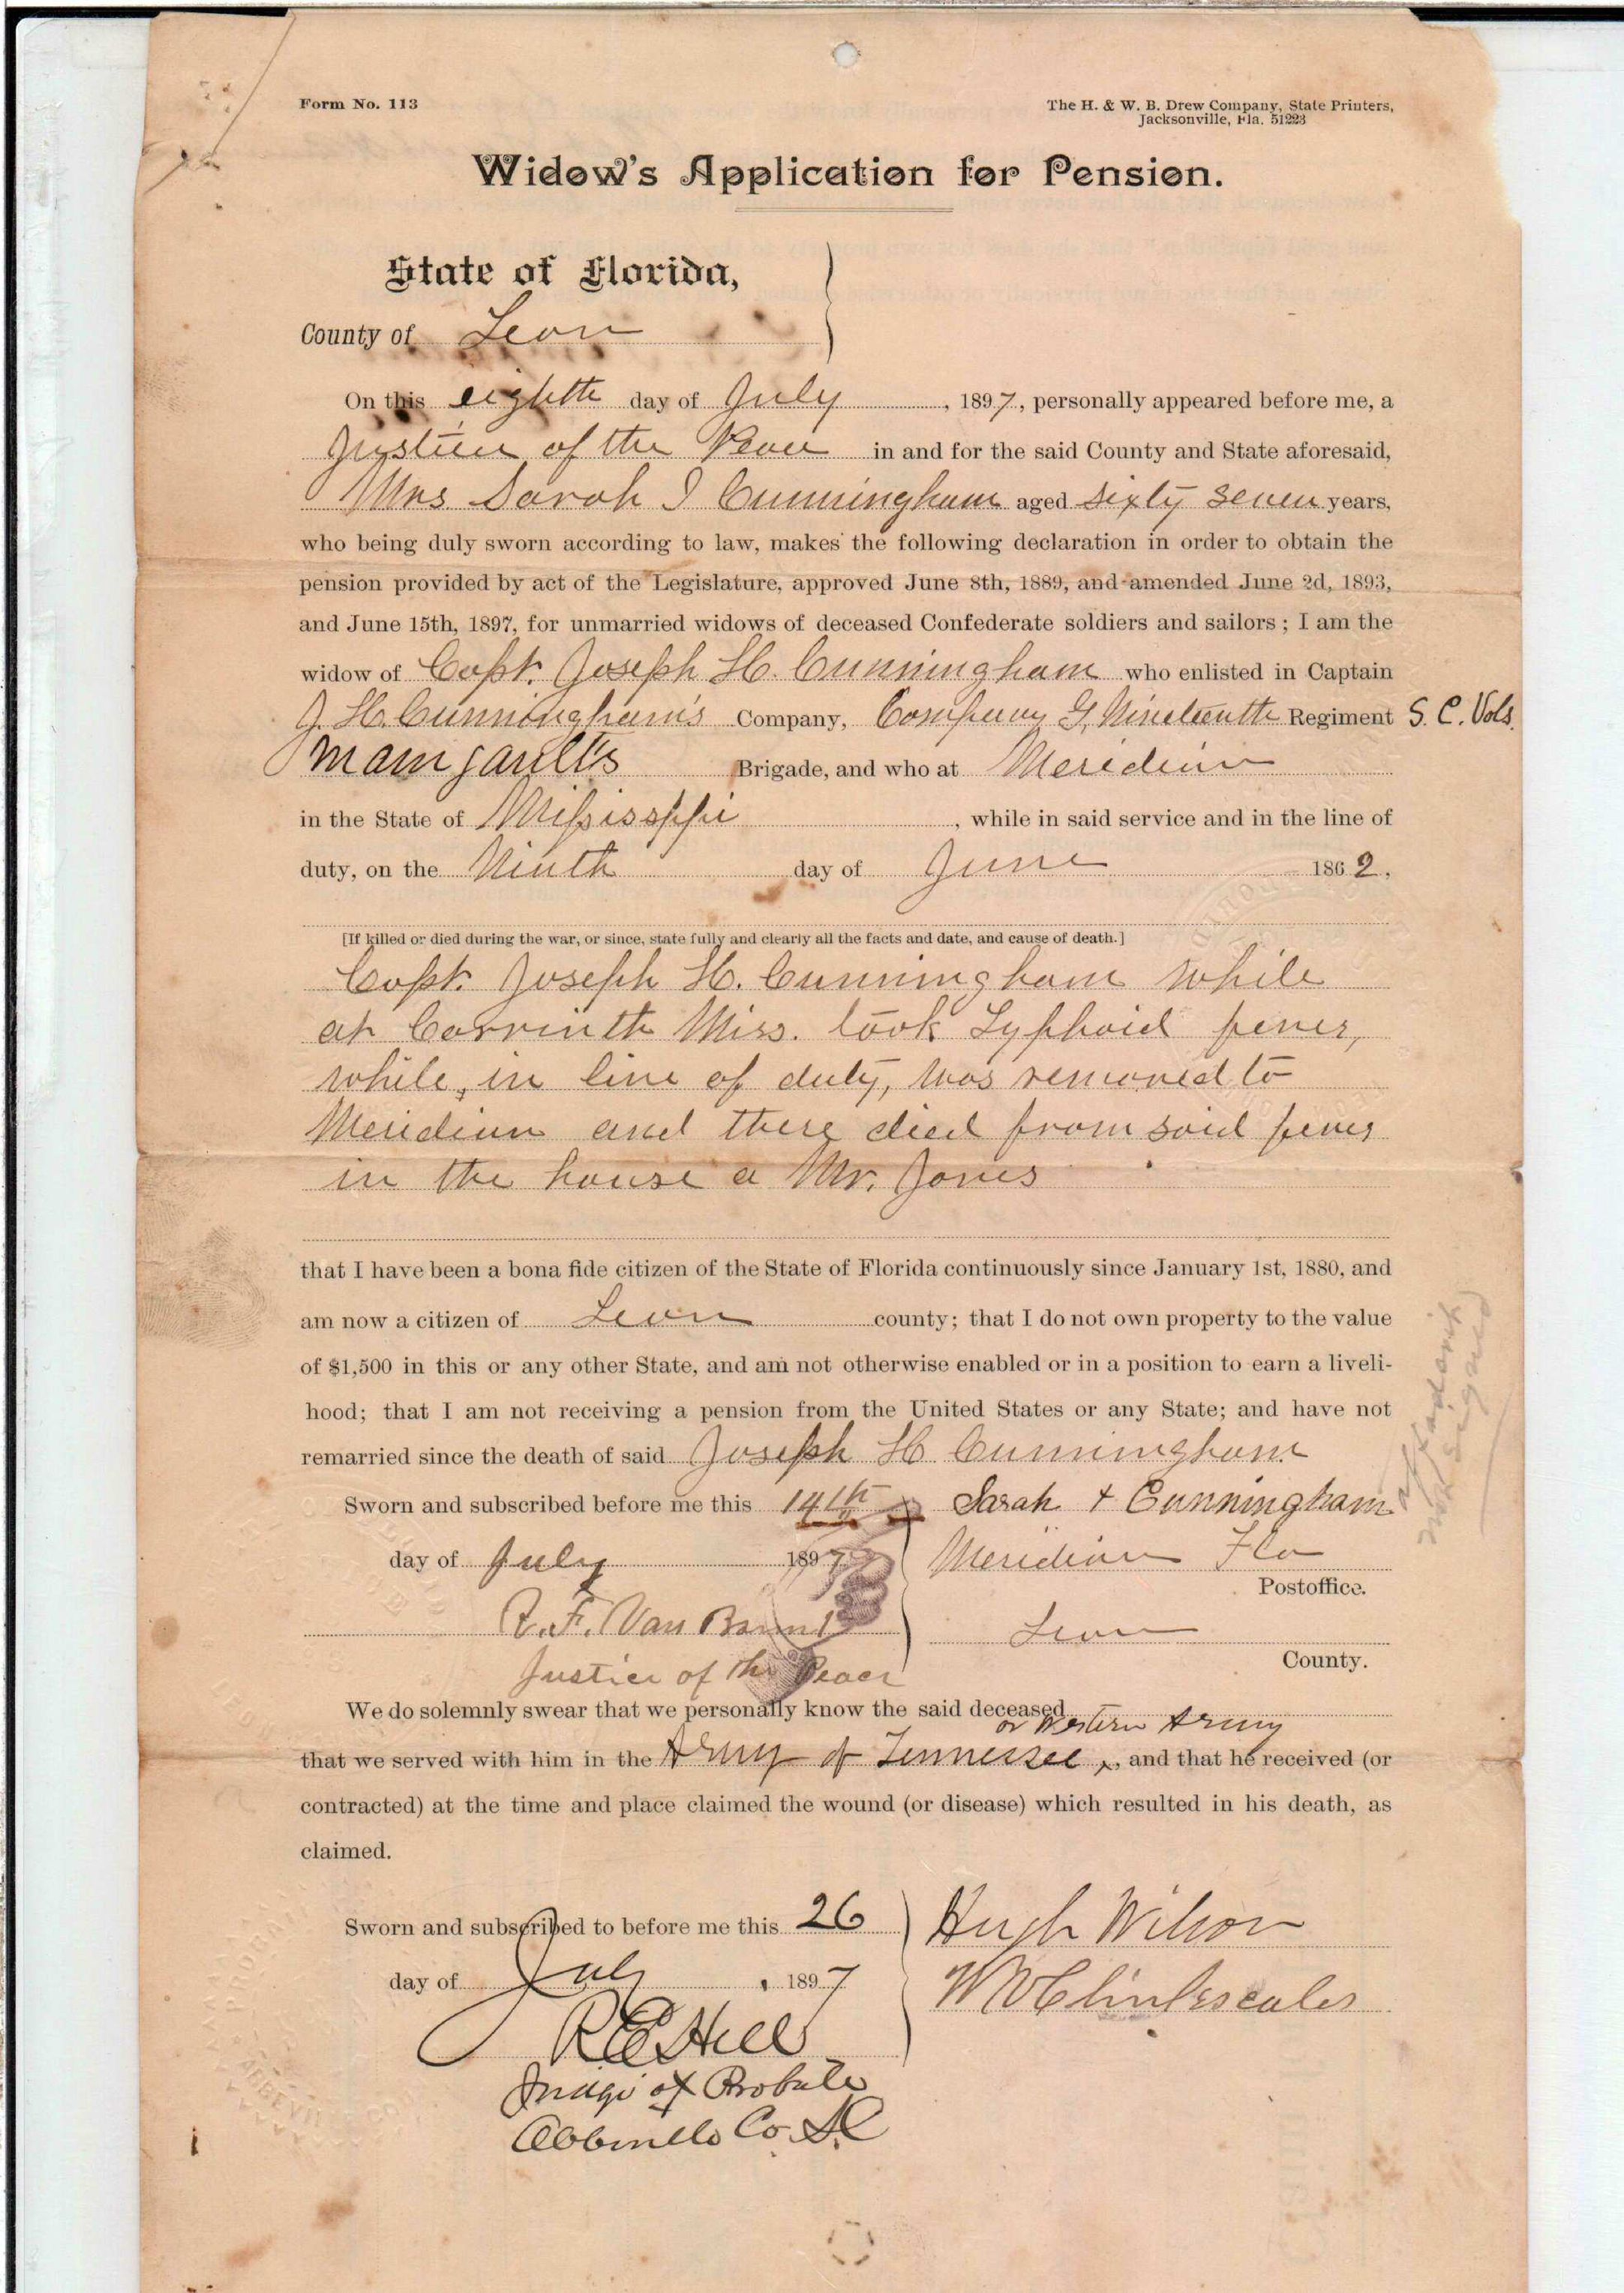 Form No. 113
The H. & W. B. Drew Company, State Printers,
Jacksonville, Fla. 51223
Widow's Application for Pension.
State of Florida,
County of Leon
On this eighth day of July, 1897, personally appeared before me, a
Justice of the Peace in and for the said County and State aforesaid,
Mrs Sarah J Cunningham aged sixty seven years,
who being duly sworn according to law, makes the following declaration in order to obtain the
pension provided by act of the Legislature, approved June 8th, 1889, and amended June 2d, 1893,
and June 15th, 1897, for unmarried widows of deceased Confederate soldiers and sailors; I am the
widow of Capt. Joseph H. Cunningham who enlisted in Captain
J. H. Cunningham's Company, Company G, Nineteenth Regiment S. C. Vols.
Manigault's Brigade, and who at Meridian
in the State of Missisappi, while in said service and in the line of
duty, on the Ninth day of June 1862,
[If killed or died during the war, or since, state fully and clearly all the facts and date, and cause of death.]
Capt. Joseph H. Cunningham while
at Corrinth Miss. took Typhoid fever,
while, in line of duty, was removed to
Meridian and there died from said fever
in the house a Mr. Jones
that I have been a bona fide citizen of the State of Florida continuously since January 1st, 1880, and
am now a citizen of Leon county; that I do not own property to the value
of $1,500 in this or any other State, and am not otherwise enabled or in a position to earn a liveli-
hood; that I am not receiving a pension from the United States or any State; and have not
remarried since the death of said Joseph H Cunningham
Sworn and subscribed before me this 14th Sarah + Cunningham
day of July 1897 Meridian Fla
Postoffice.
R. F. Van Brunt Leon
County.
Justice of the Peace
We do solemnly swear that we personally know the said deceased
or Western Army
that we served with him in the Army of Tennessee, and that he received (or
contracted) at the time and place claimed the wound (or disease) which resulted in his death, as
claimed.
Sworn and subscribed to before me this 26 Hugh Wilson
day of July, 1897 W W Clinkscales
R E Hill
Judge of Probate
Abbeville Co. S C
affidavit
not signed